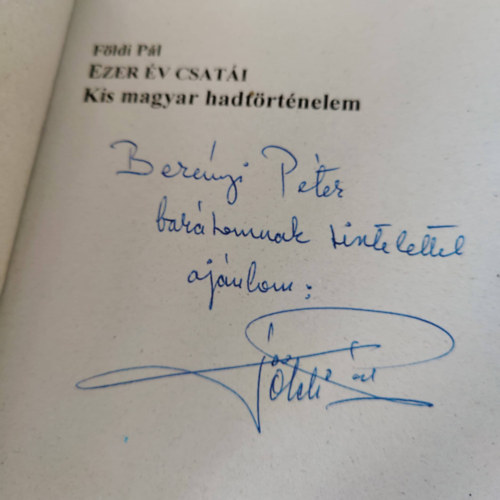 Földi Pál
EZER ÉV CSATÁI
Kis magyar hadtörténelem
Berényi Péter
barátomnak tisztelettel
ajánlom:
Földi Pál